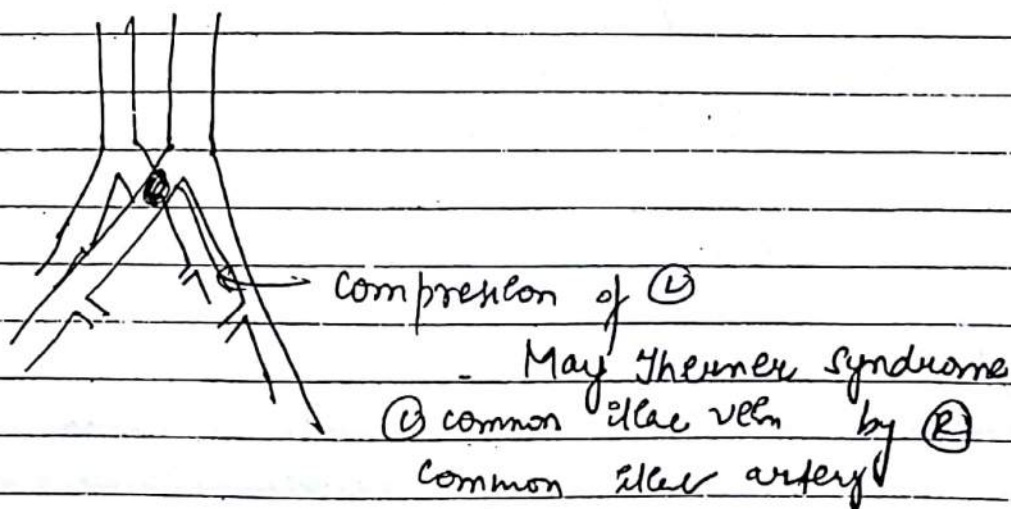 compression of Ⓛ
May Therner Syndrome
Ⓛ common iliac vein by Ⓡ
common iliac artery